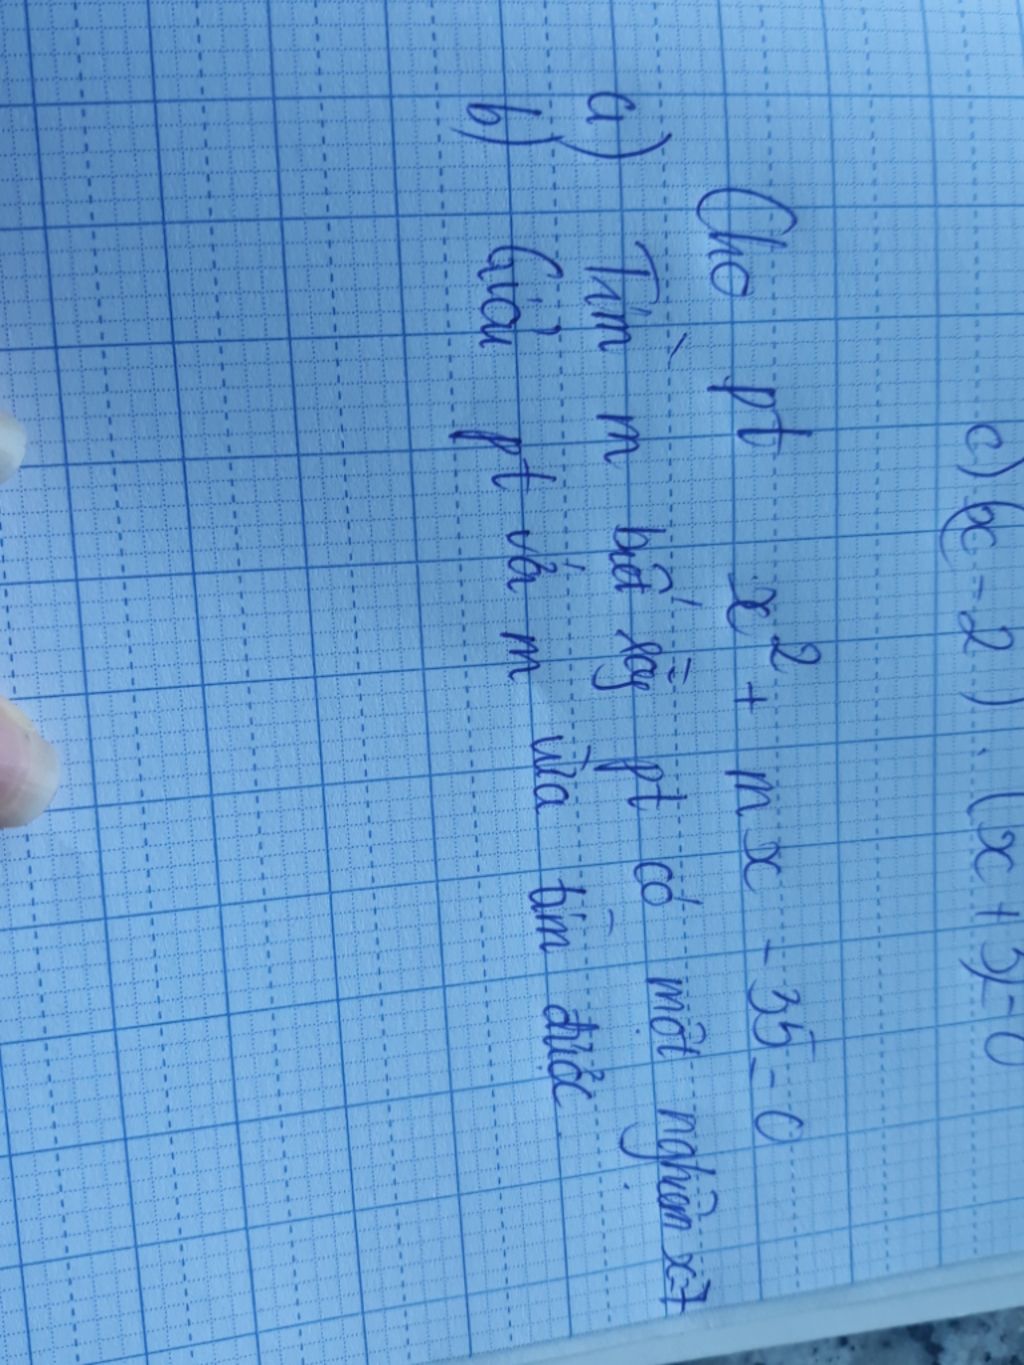 c) (x - 2) . (x + 3) = 0
Cho pt x² + mx - 35 = 0
a) Tìm m biết rằng pt có một nghiệm x=7
b) Giải pt với m vừa tìm được.